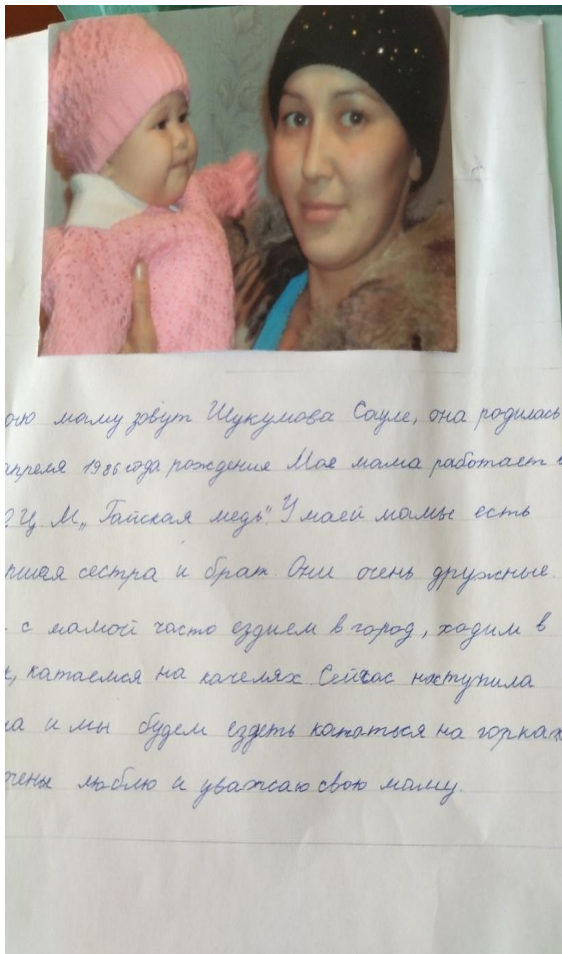 ою маму зовут Шукумова Сауле, она родилась
апреля 1986 года рождения Мае мама работает
Ц.М „Гайская медь". У маей мамы есть
ршая сестра и брат. Они очень дружные.
с мамой часто ездием в город, ходим в
к, катаемся на качелях. Сейчас нхтупила
ма и мы будем ездеть кататься на горках
чены люблю и уважаю свою маму.